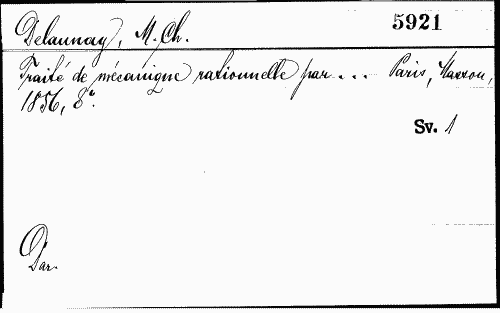 Delaunay, M. Ch. 5921
Traité de mécanique rationnelle par... Paris, Masson,
1856, 8°.
Sv. 1
Dar.